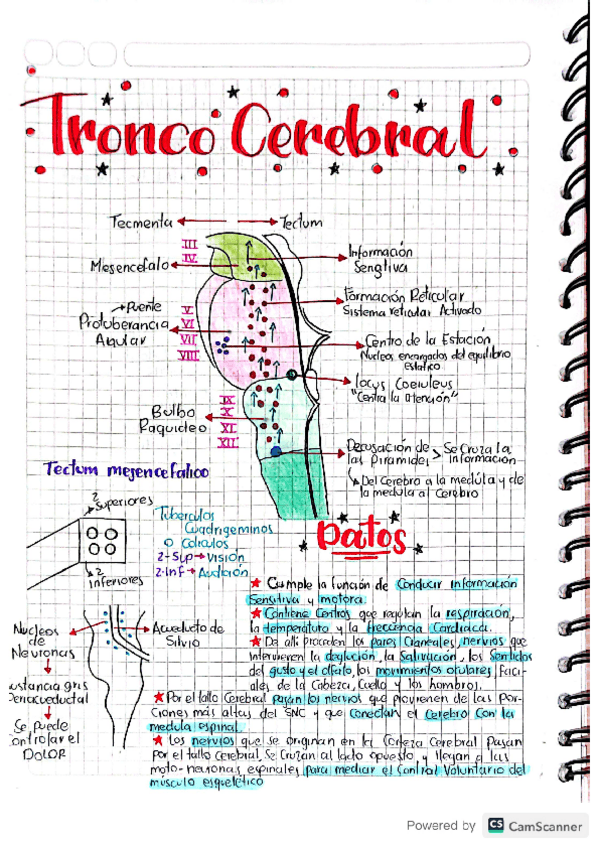 Tronco Cerebral
Tecmenta
Tectum
III
IV
Mesencefalo
Información
Sensitiva
Puente
Protuberancia
Anular
V
VI
VII
VIII
Formación Reticular
Sistema reticular Activado
Centro de la Estación
Nucleos encargados del equilibrio
estatico
Locus Coeruleus
"Centra la Atención"
Bulbo
Raquideo
IX
X
XI
XII
Decusación de
las Piramides
Se Cruza la
información
Del Cerebro a la medúla y de
la medula al Cerebro
Tectum mesencefalico
2
Superiores
2
Inferiores
Tuberculos
Cuadrigeminos
o Coliculos
2-Sup → Visión
2-inf → Audición
Nucleos
de
Neuronas
Acueducto de
Silvio
ustancia gris
eriacueductal
Se puede
ontrolar el
DOLOR
Datos
Cumple la función de Conducir Información
Sensitiva y motora.
Contiene Centros que regulan la respiración,
la temperatura y la frecuencia Cardiaca.
De alli proceden los pares Craneales, nervios que
intervienen la deglución, la Salivación, los Sentidos
del gusto y el olfato, los movimientos oculares, faci-
ales de la Cabeza, Cuello y los hombros).
Por el tallo Cerebral pasan los nervios que provienen de las Por-
Ciones más altas del SNC y que conectan el Cerebro Con la
medula espinal.
Los nervios que se originan en la Corteza Cerebral Pasan
por el tallo Cerebral, Se Cruzan al lado opuesto y llegan a las
moto-neuronas espinales para mediar el Control Voluntario del
músculo esquelético
Powered by CS CamScanner